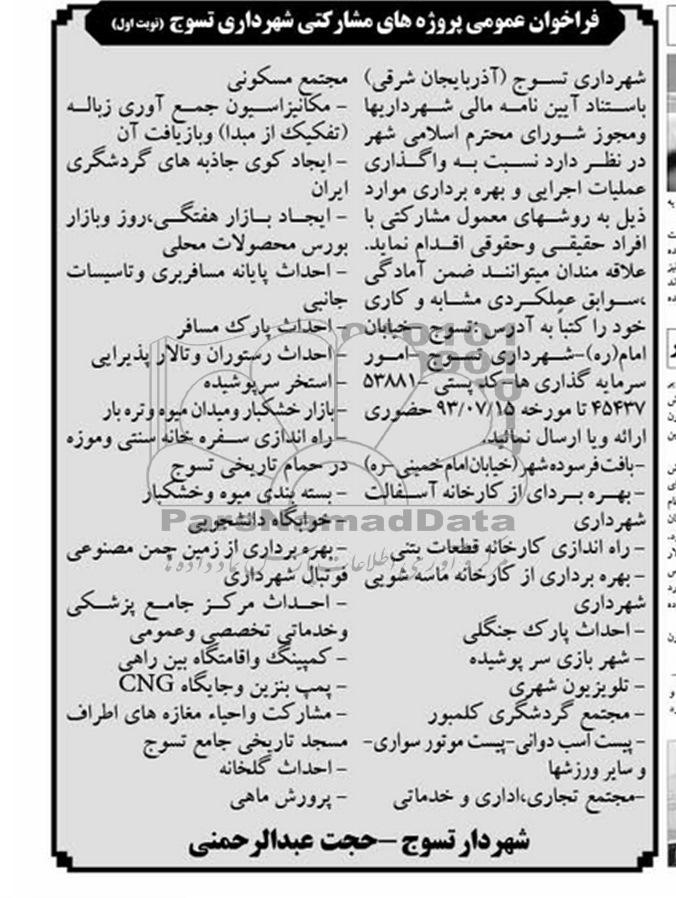 فراخوان عمومی پروژه های مشارکتی شهرداری تسوج (نوبت اول)
شهرداری تسوج (آذربایجان شرقی)
باستناد آیین نامه مالی شهرداریها
ومجوز شورای محترم اسلامی شهر
در نظر دارد نسبت به واگذاری
عملیات اجرایی و بهره برداری موارد
ذیل به روشهای معمول مشارکتی با
افراد حقیقی وحقوقی اقدام نماید.
علاقه مندان میتوانند ضمن آمادگی
،سوابق عملکردی مشابه و کاری
خود را کتباً به آدرس :تسوج -خیابان
امام(ره)-شهرداری تسوج -امور
سرمایه گذاری ها-کد پستی -۵۳۸۸۱
۴۵۴۳۷ تا مورخه ۹۳/۰۷/۱۵ حضوری
ارائه ویا ارسال نمائید.
-بافت فرسوده شهر (خیابان امام خمینی -ره)
- بهره بردای از کارخانه آسفالت
شهرداری
- راه اندازی کارخانه قطعات بتنی
- بهره برداری از کارخانه ماسه شویی
شهرداری
- احداث پارک جنگلی
- شهر بازی سر پوشیده
- تلویزیون شهری
- مجتمع گردشگری کلمبور
- پیست اسب دوانی-پیست موتور سواری-
و سایر ورزشها
-مجتمع تجاری،اداری و خدماتی
مجتمع مسکونی
- مکانیزاسیون جمع آوری زباله
(تفکیک از مبدا) وبازیافت آن
- ایجاد کوی جاذبه های گردشگری
ایران
- ایجاد بازار هفتگی،روز وبازار
بورس محصولات محلی
- احداث پایانه مسافربری وتاسیسات
جانبی
- احداث پارک مسافر
- احداث رستوران وتالار پذیرایی
- استخر سرپوشیده
-بازار خشکبار ومیدان میوه وتره بار
-راه اندازی سفره خانه سنتی وموزه
در حمام تاریخی تسوج
- بسته بندی میوه وخشکبار
- خوابگاه دانشجویی
- بهره برداری از زمین چمن مصنوعی
فوتبال شهرداری
- احداث مرکز جامع پزشکی
وخدماتی تخصصی وعمومی
- کمپینگ واقامتگاه بین راهی
- پمپ بنزین وجایگاه CNG
- مشارکت واحیاء مغازه های اطراف
مسجد تاریخی جامع تسوج
- احداث گلخانه
- پرورش ماهی
شهردار تسوج -حجت عبدالرحمنی
ParsNamadData